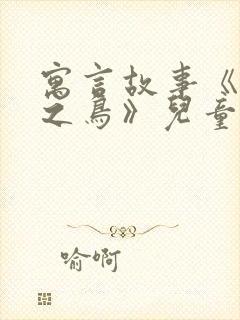 寓言故事《
之鳥》兒童
喻啊